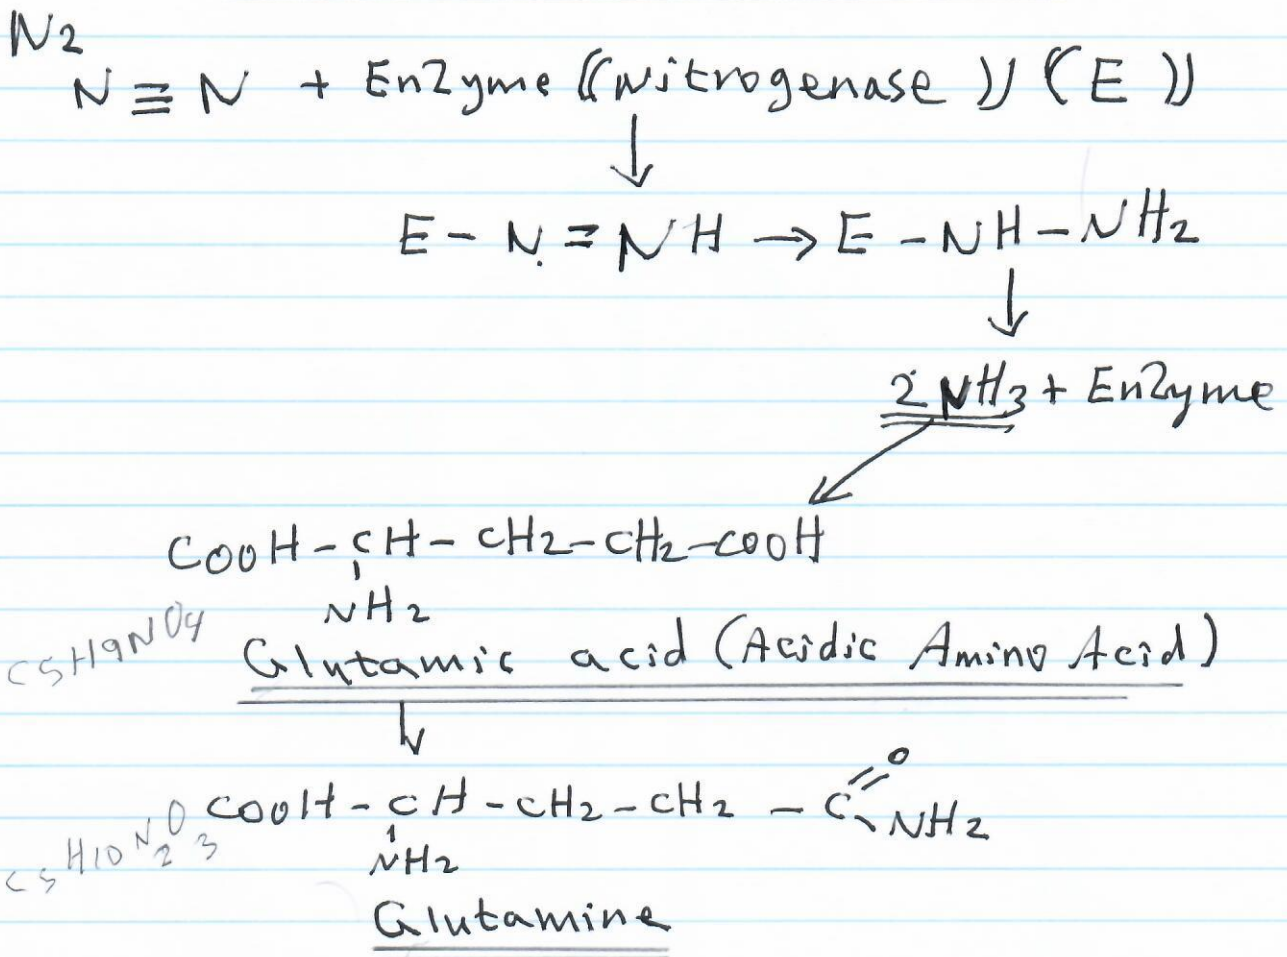 N2
N ≡ N + Enzyme ((Nitrogenase)) (E))
↓
E - N = NH → E - NH - NH2
↓
2 NH3 + Enzyme
COOH - CH - CH2 - CH2 - COOH
NH2
C5H9NO4
Glutamic acid (Acidic Amino Acid)
↓
COOH - CH - CH2 - CH2 - C=O
NH2
NH2
C5H10N2O3
Glutamine